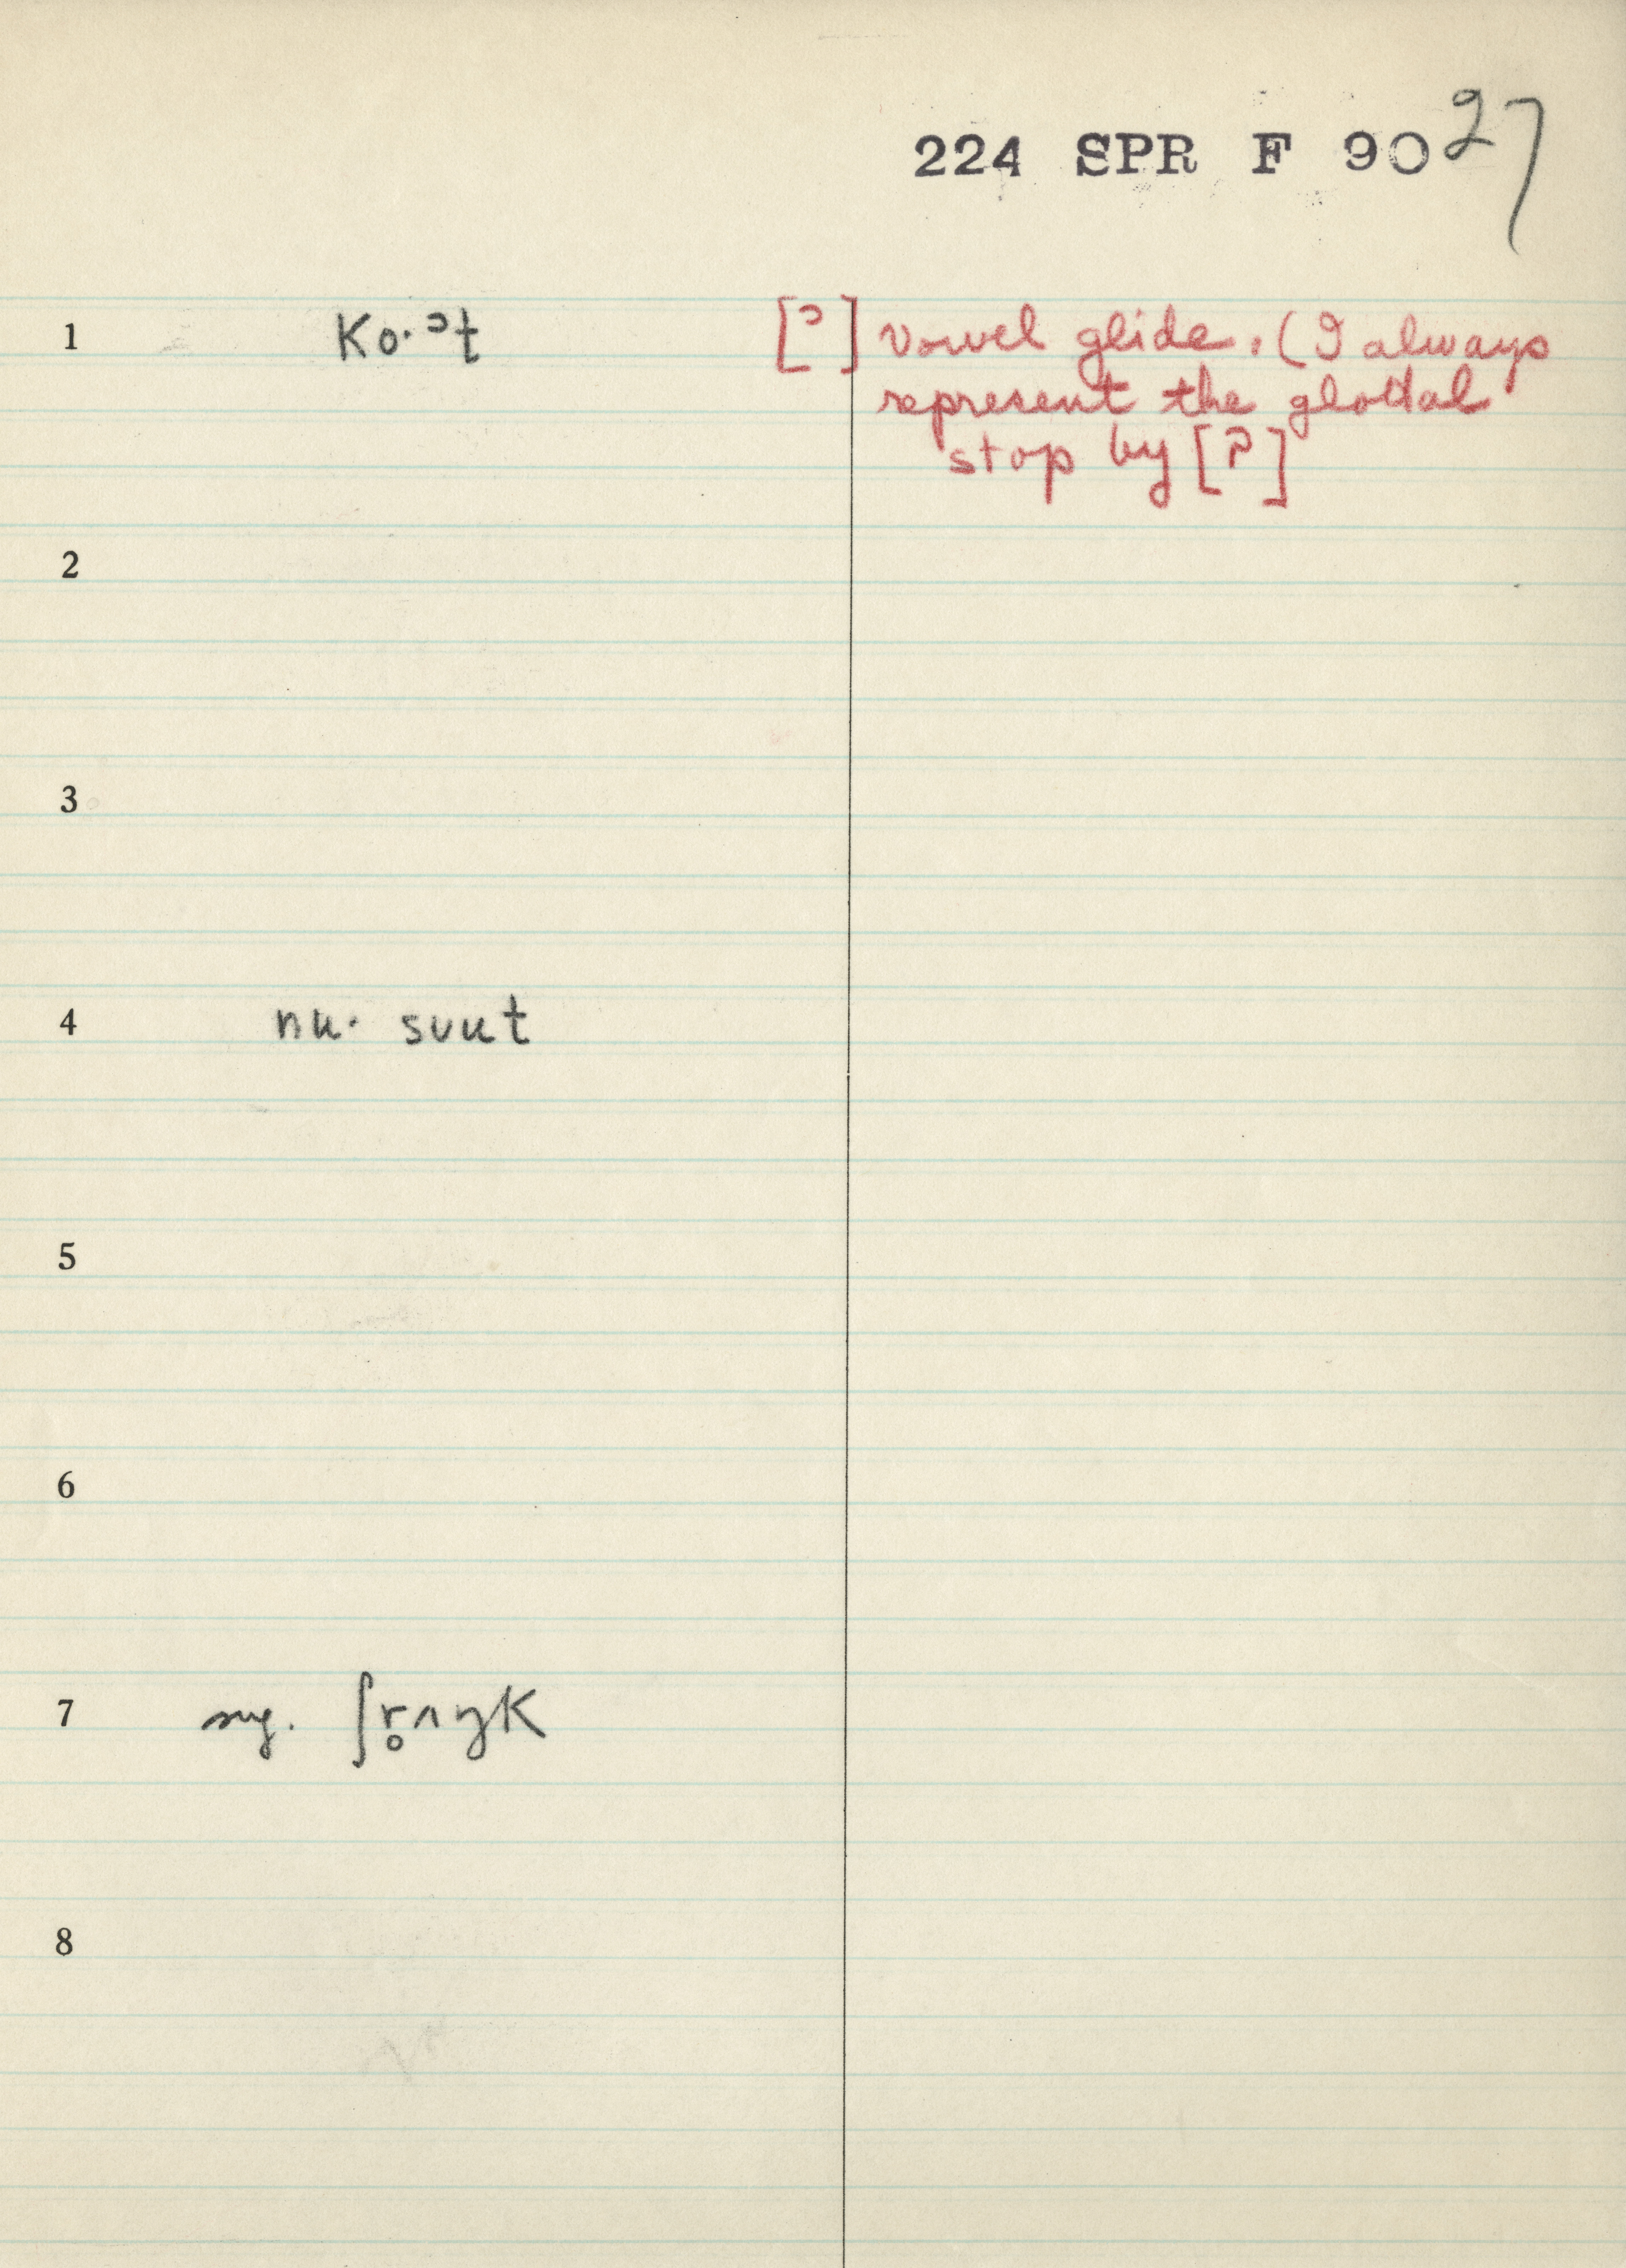 224 SPR F 90 27
1 Ko·ᵓt [ᵓ] Vowel glide. (I always
represent the glottal
stop by [ʔ]
2
3
4 nu· suut
5
6
7 sug. ʃr̥ʌŋK
8